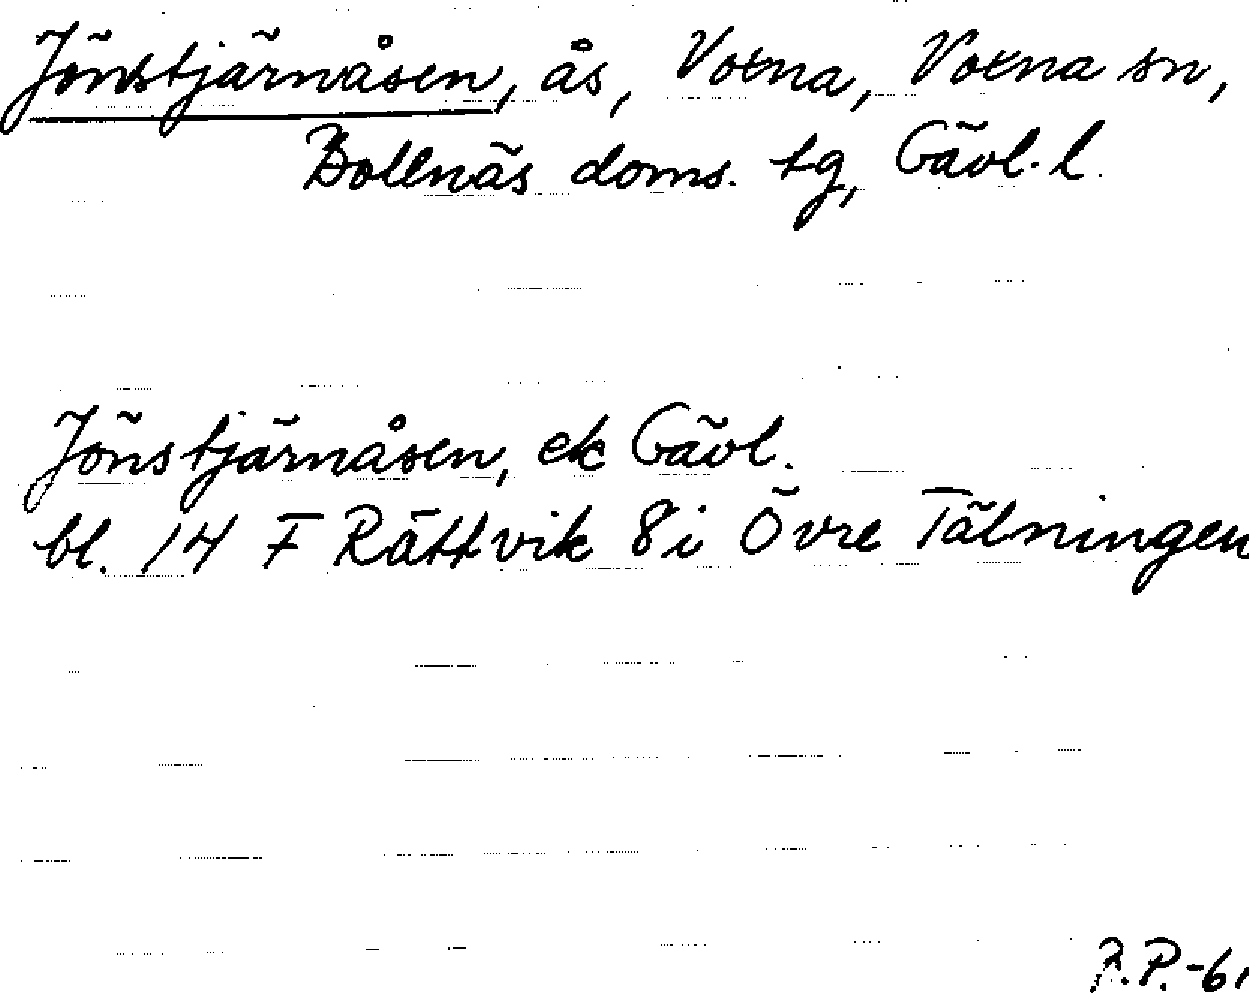 Jönstjärnåsen, ås, Voxna, Voxna sn,
Bollnäs doms. tg, Gävl. l.
Jönstjärnåsen, ek Gävl.
bl. 14 F Rättvik 8i Övre Tälningen
P.-61